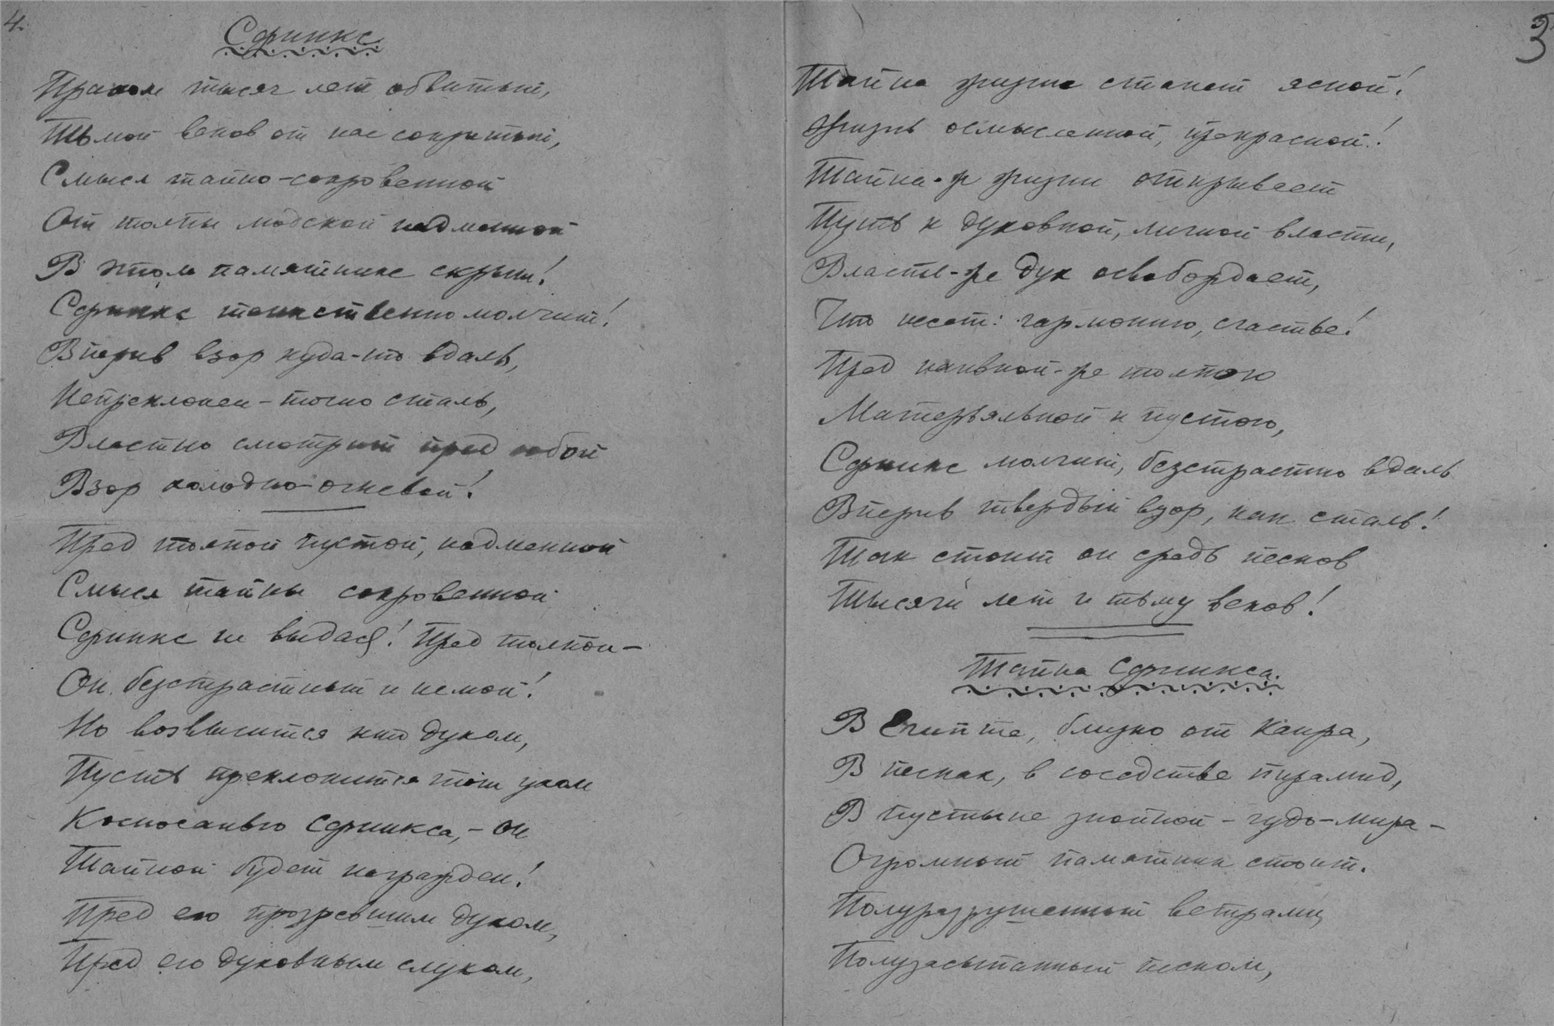 4.
Сфинкс
Прахом тысяч лет обвитый,
Тьмой веков от нас сокрытый,
Смысл тайно-сокровенной
От толпы людской надменной
В этом памятнике скрыт!
Сфинкс таинственно молчит!
Вперив взор куда-то вдаль,
Непреклонен – точно сталь,
Властно смотрит пред собой
Взор холодно-огневой!
Пред толпой пустой, надменной
Смысл тайны сокровенной
Сфинкс не выдаст! Пред толпой –
Он безстрастный и немой!
Но возвысится кто духом,
Пусть преклонится том ухом
К осносанью Сфинкса, – он
Тайной будет награжден!
Пред его прозревшим духом,
Пред его духовным слухом,
3
Тайна жизни станет ясной!
Жизнь осмысленной, прекрасной!
Тайна-ж жизни открывает
Путь к духовной, личной власти,
Власть-же дух освобождает,
Что несет: гармонию, счастье!
Пред наивной-же толпою
Матерьяльной и пустою,
Сфинкс молчит, безстрастно вдаль
Вперив твердый взор, как сталь!
Так стоит он средь песков
Тысячи лет и тьму веков!
Тайна Сфинкса.
В Египте, близко от Каира,
В песках, в соседстве пирамид,
В пустыне знойной – чудо-мира –
Огромный памятник стоит.
Полуразрушенный ветрами,
Полузасыпанный песком,